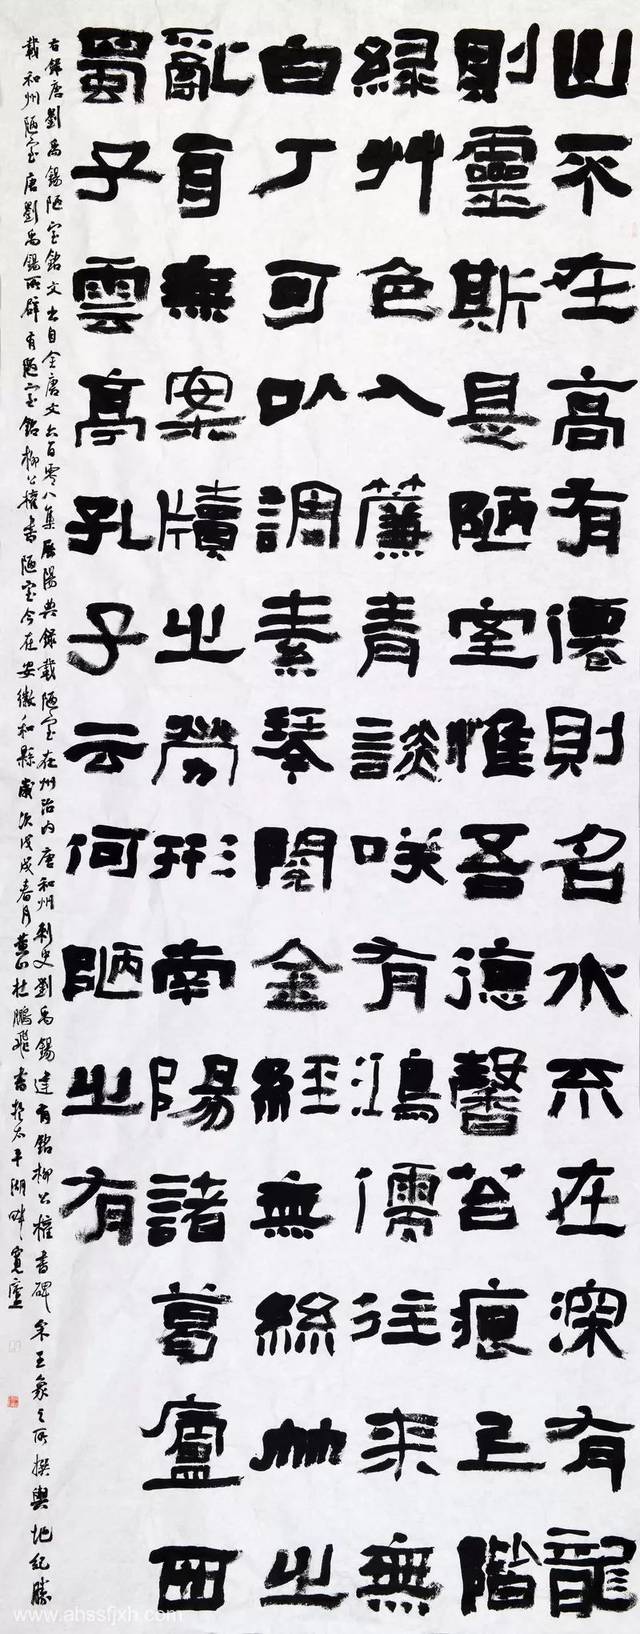 山不在高有僊則名水不在深有龍
則靈斯是陋室惟吾德馨苔痕上階
綠艸色入簾青談咲有鴻儒往來無
白丁可以調素琴閱金經無絲竹之
亂耳無案牘之勞形南陽諸葛廬西
蜀子雲亭孔子云何陋之有
右錄唐劉禹錫陋室銘文出自全唐文六百零八集歷陽典錄載陋室在州治內唐和州刺史劉禹錫建有銘柳公權書碑宋王象之所撰輿地紀勝
載和州陋室唐劉禹錫所辟有陋室銘柳公權書陋室今在安徽和縣歲次戊戌春月黃山杜鵬飛書於太平湖畔寬廬
www.ahssfjxh.com